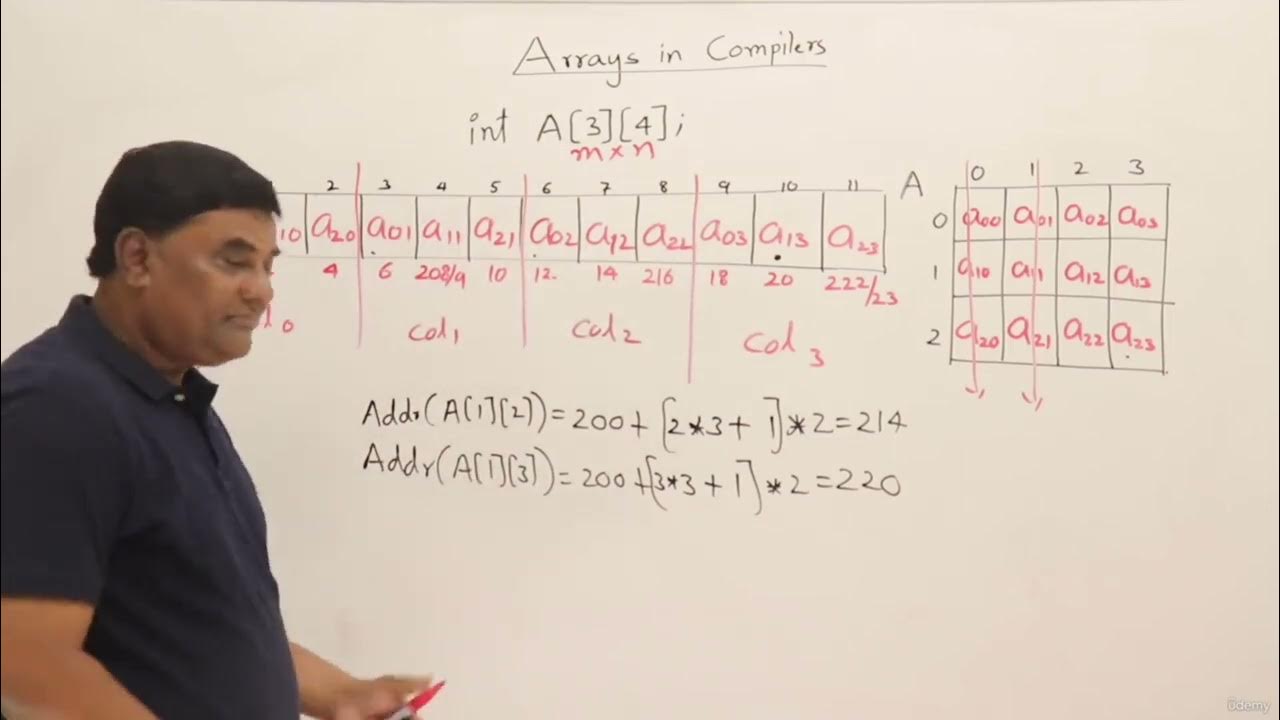 Arrays in Compilers
int A[3][4];
m×n
2 3 4 5 6 7 8 9 10 11
10 a20 a01 a11 a21 a02 a12 a22 a03 a13 a23
4 6 208/9 10 12 14 216 18 20 222/23
0 col1 col2 col3
A 0 1 2 3
0 a00 a01 a02 a03
1 a10 a11 a12 a13
2 a20 a21 a22 a23
Addr(A[1][2]) = 200 + [2*3 + 1] * 2 = 214
Addr(A[1][3]) = 200 + [3*3 + 1] * 2 = 220
Udemy